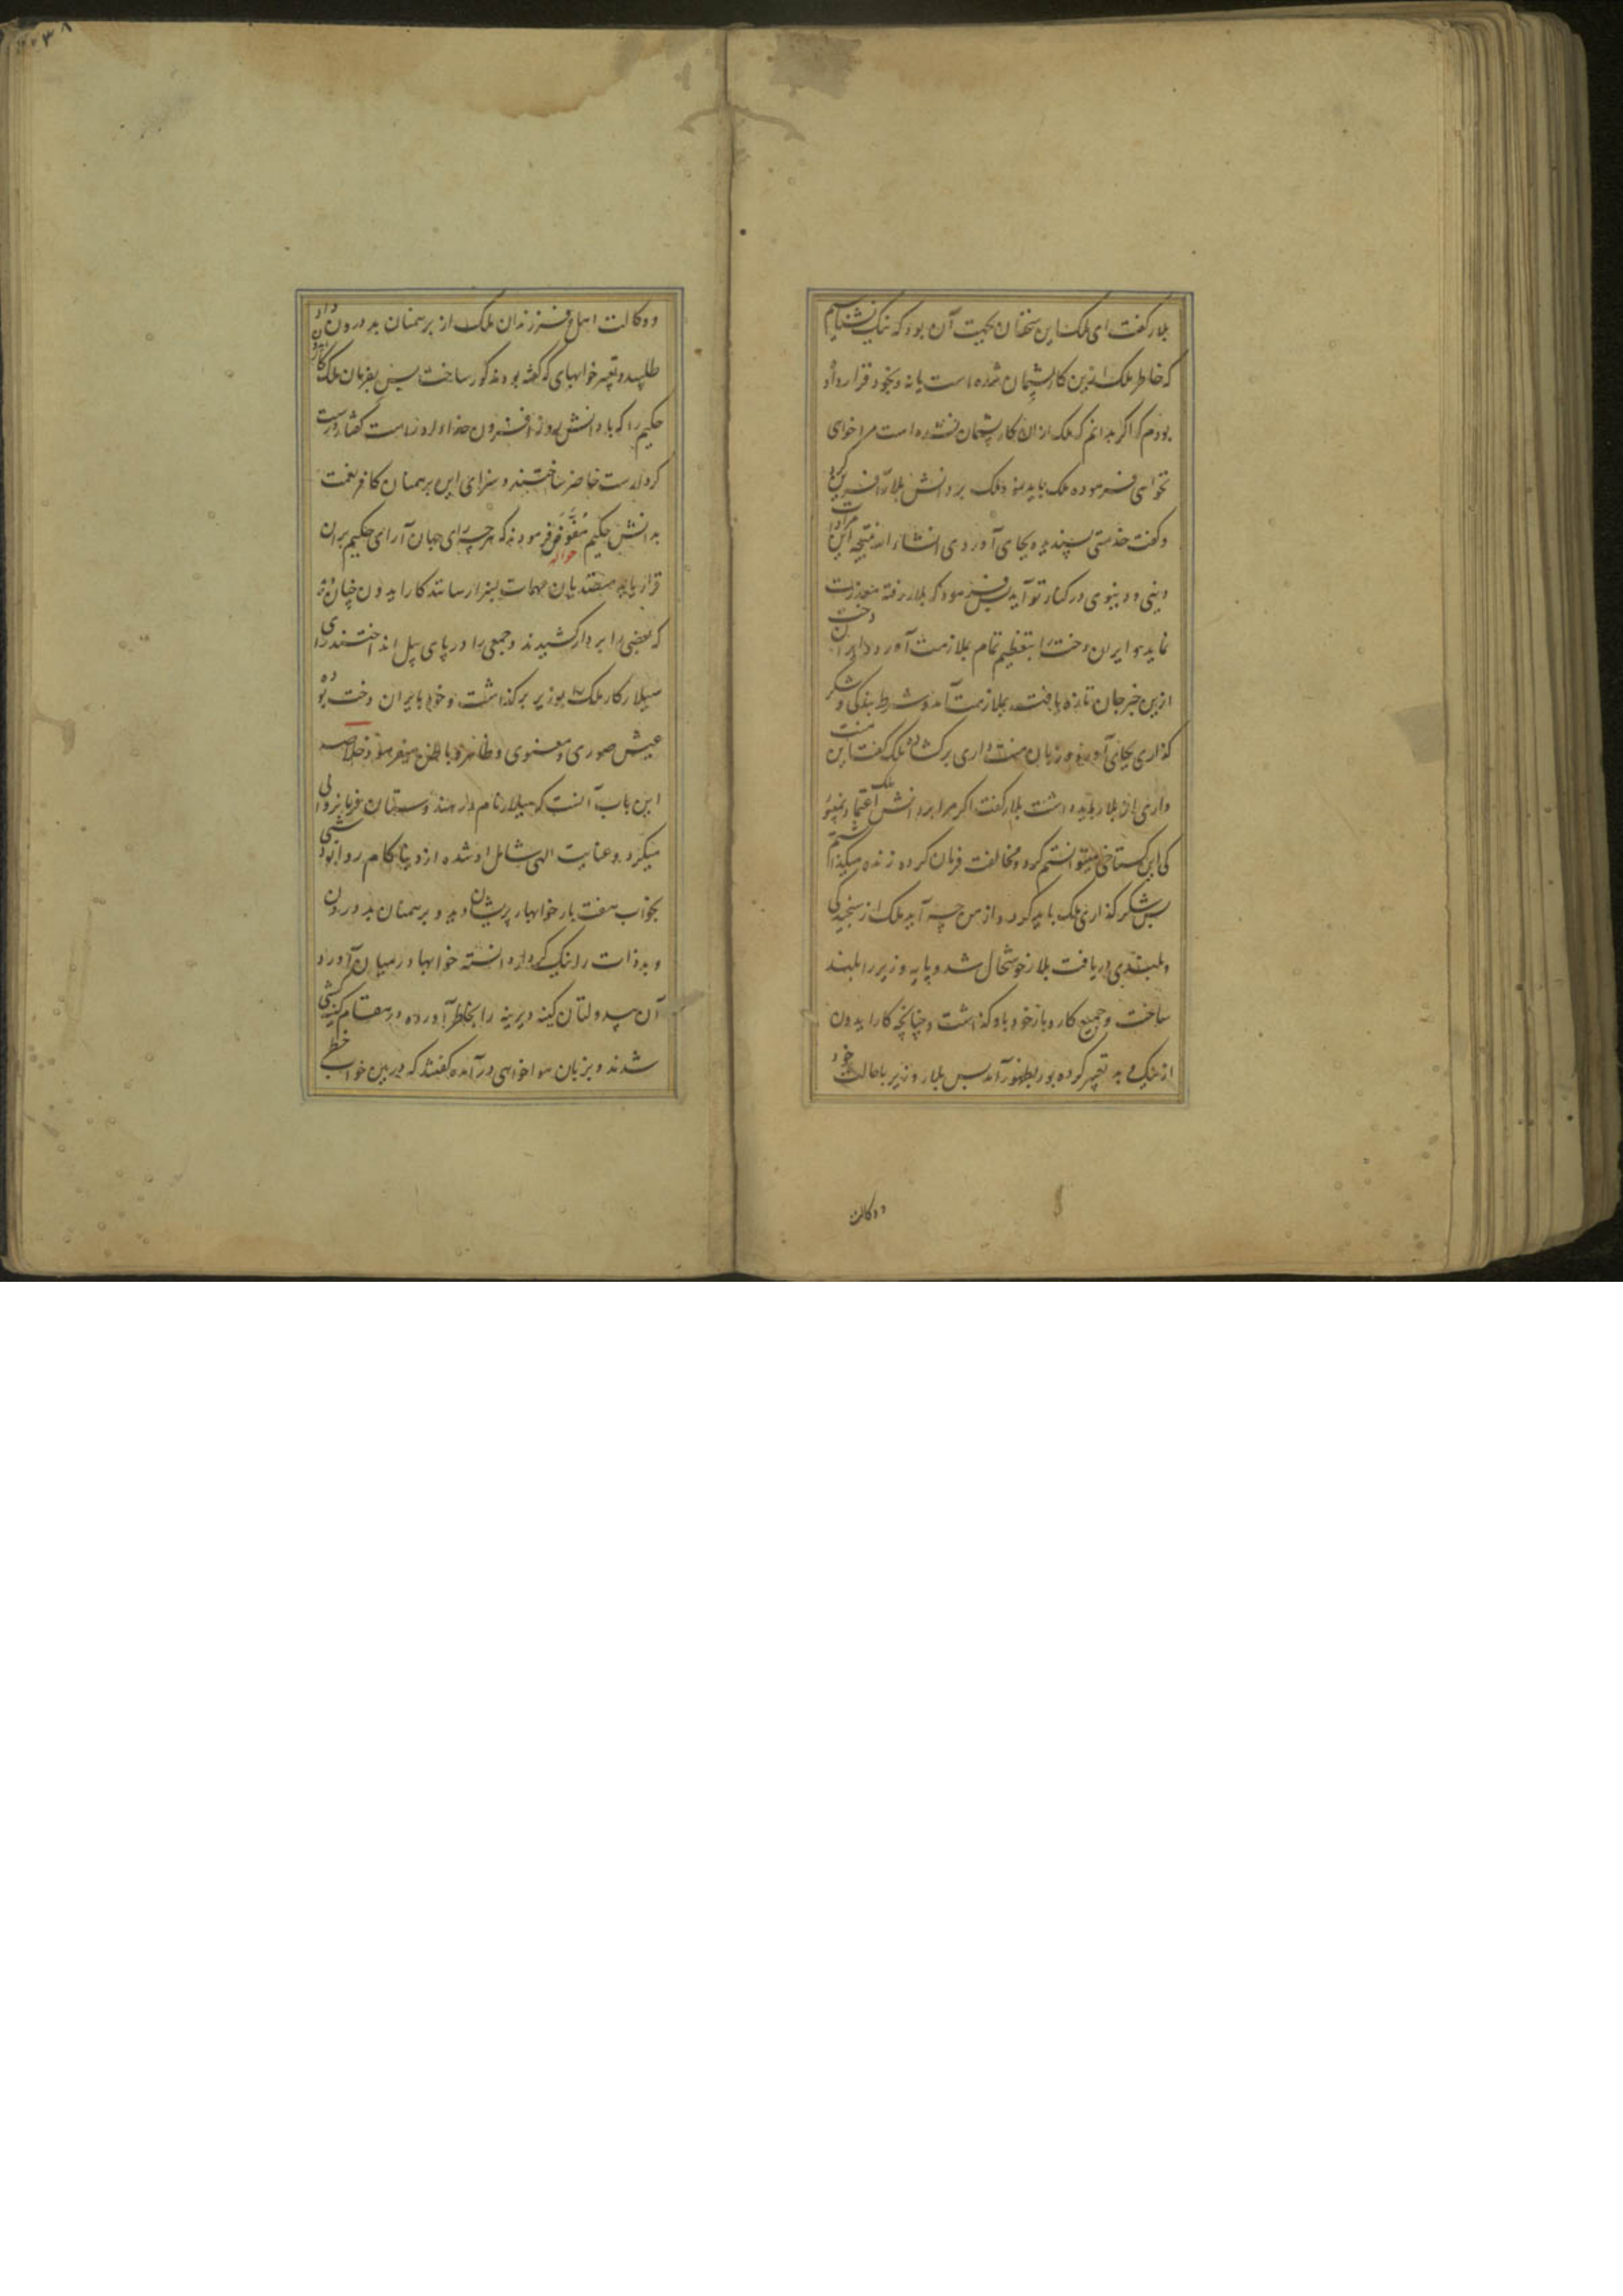 بلار گفت ای ملک این سخنان بجهت آن بود که نیک بشناسم
که خاطر ملک ازین کار پشیمان شده است یا نه و بخود قرار داد
بودم که اگر بدانم که ملک ازان کار پشیمان نشده است مرا خواهی
نخواهی فرموده ملک باید نمود ملک بر دانش بلار آفرین
و گفت خدمتی پسندیده بجای آوردی انشاء الله نتیجه این
دینی و دنیوی در کنار تو آید پس فرمود که بلار رفته معذرت
نماید و ایران دخت را بتعظیم تمام بملازمت آورد ایران دخت
ازین خبر جان تازه یافت بملازمت آمد و شرط بندگی و شکر
گذاری بجای آورد و زبان منت داری برگشاده ملک گفت این منت
داری از بلار باید داشت بلار گفت اگر مرا بر دانش ملک اعتماد نمیبود
کی این گستاخی میتوانستم کرد و مخالفت فرمان کرده زنده میگذاشتم
پس شکر گذاری ملک باید کرد و از من چه آید ملک از سنجیدگی
و بلندی دریافت بلار خوشحال شد و پایه وزیر را بلند
ساخت و جمیع کار و بار خود باو گذاشت و چنانچه کارایدون
از نیک و بد تعبیر کرده بود بظهور آمد پس بلار وزیر باحالت خود
ووکالت
ووکالت اهل و فرزندان ملک از برهمنان بد درون
طلبید و تعبیر خوابهای که گفته بودند مذکور ساخت پس بفرمان ملک
حکیم را که با دانش روز افزون خداداد راست گفتار درست
کردارست حاضر ساختند و سزای این برهمنان کافر نعمت
بدانش حکیم مفوض فرمودند که هرچه رای جهان آرای حکیم بران
حواله
قرار یابد متصدیان مهمات بسزا رسانند کارایدون چنان
که بعضی را بر دار کشیدند و جمعی را در پای پیل انداختند رای
هیلار کار ملک بوزیر برگذاشت و خود با ایران دخت بوده
عیش صوری و معنوی و ظاهر و باطن میفرمود خلاصه
این باب آنست که هیلار نام در هندوستان فرمانروائی
میکرد و عنایت الهی شامل او شده از دنیا کام روا بود شبی
بخواب هفت بار خوابهای پریشان دید و برهمنان بد درون
و بد ذات را نیک کردار دانسته خوابها در میان آورد
آن بیدولتان کینه دیرینه را بخاطر آورده در مقام کینه کشی
شدند و بزبان هواخواهی در آمده گفتند که درین خواب خطی